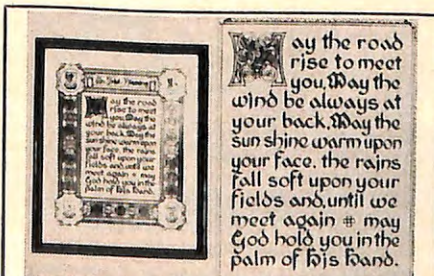 May the road
rise to meet
you, May the
wind be always at
your back, May the
sun shine warm upon
your face, the rains
fall soft upon your
fields and, until we
meet again may
God hold you in the
palm of his hand.
May the road
rise to meet
you, May the
wind be always at
your back, May the
sun shine warm upon
your face, the rains
fall soft upon your
fields and, until we
meet again # may
God hold you in the
palm of his hand.